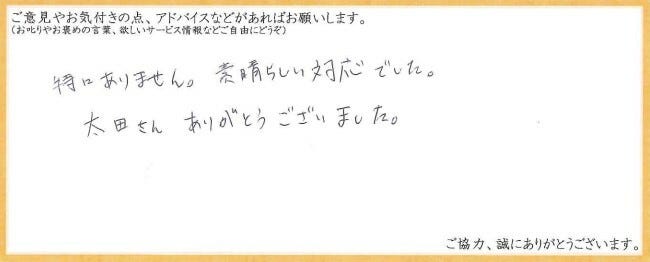 ご意見やお気付きの点、アドバイスなどがあればお願いします。
(お叱りやお褒めの言葉、欲しいサービス情報などご自由にどうぞ)
特にありません。素晴らしい対応でした。
太田さん ありがとうございました。
ご協力、誠にありがとうございます。